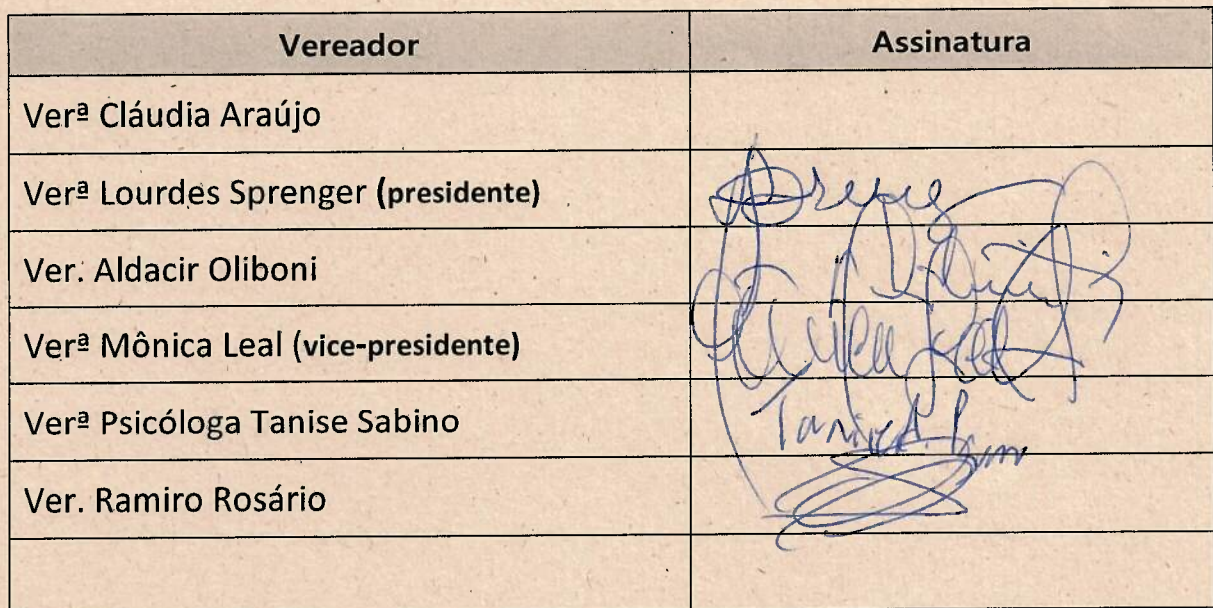 Vereador Assinatura
Verª Cláudia Araújo
Verª Lourdes Sprenger (presidente)
Ver. Aldacir Oliboni
Verª Mônica Leal (vice-presidente)
Verª Psicóloga Tanise Sabino
Ver. Ramiro Rosário